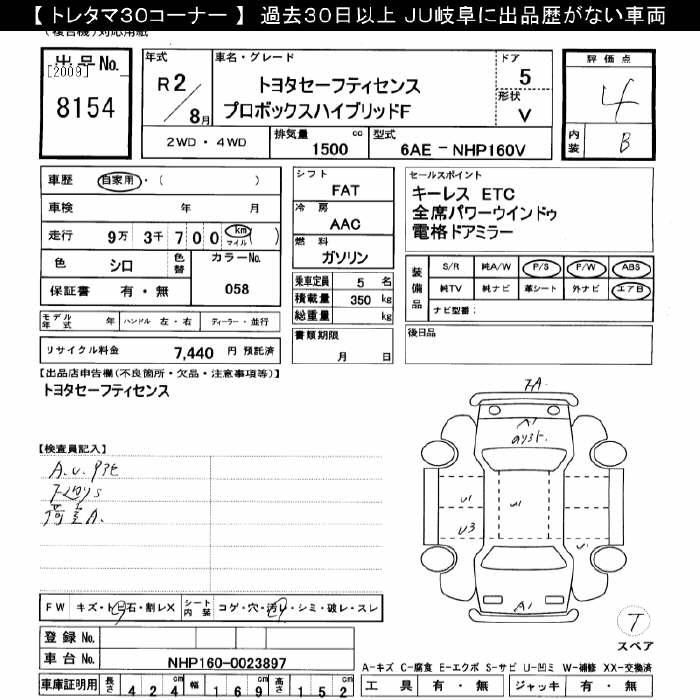 【 トレタマ30コーナー 】 過去30日以上 JU岐阜に出品歴がない車両
(複合機)対応用紙
出品No.
[2009]
8154
年式
R 2
8月
車名・グレード
トヨタセーフティセンス
プロボックスハイブリッドF
ドア
5
形状
V
評価点
4
内装
B
2WD・4WD
排気量
1500
cc
型式
6AE - NHP160V
車歴
自家用・( )
車検
年 月
走行
9万 3千 700
km
マイル
( )
色
シロ
色替
カラーNo.
058
保証書
有・無
モデル年式
年
ハンドル 左・右
ディーラー・並行
リサイクル料金
7,440 円 預託済
シフト
FAT
冷房
AAC
燃料
ガソリン
乗車定員 5 名
積載量 350 kg
総重量 kg
書類期限
月 日
セールスポイント
キーレス ETC
全席パワーウインドゥ
電格ドアミラー
装備品
S/R 純A/W P/S P/W ABS
純TV 純ナビ 革シート 外ナビ エアB
ナビ型番:
後日品
【出品店申告欄(不良箇所・欠品・注意事項等)】
トヨタセーフティセンス
【検査員記入】
A.U.
荷室A.
FA.
A1
U1
U1
U3
U1
A1
T
スペア
FW
キズ・トビ石・割レX
シート内装
コゲ・穴・汚レ・シミ・破レ・スレ
登録No.
車台No.
NHP160-0023897
車庫証明用
長さ 424 cm
幅 169 cm
高さ 152 cm
A-キズ C-腐食 E-エクボ S-サビ U-凹ミ W-補修 XX-交換済
工具 有・無
ジャッキ 有・無